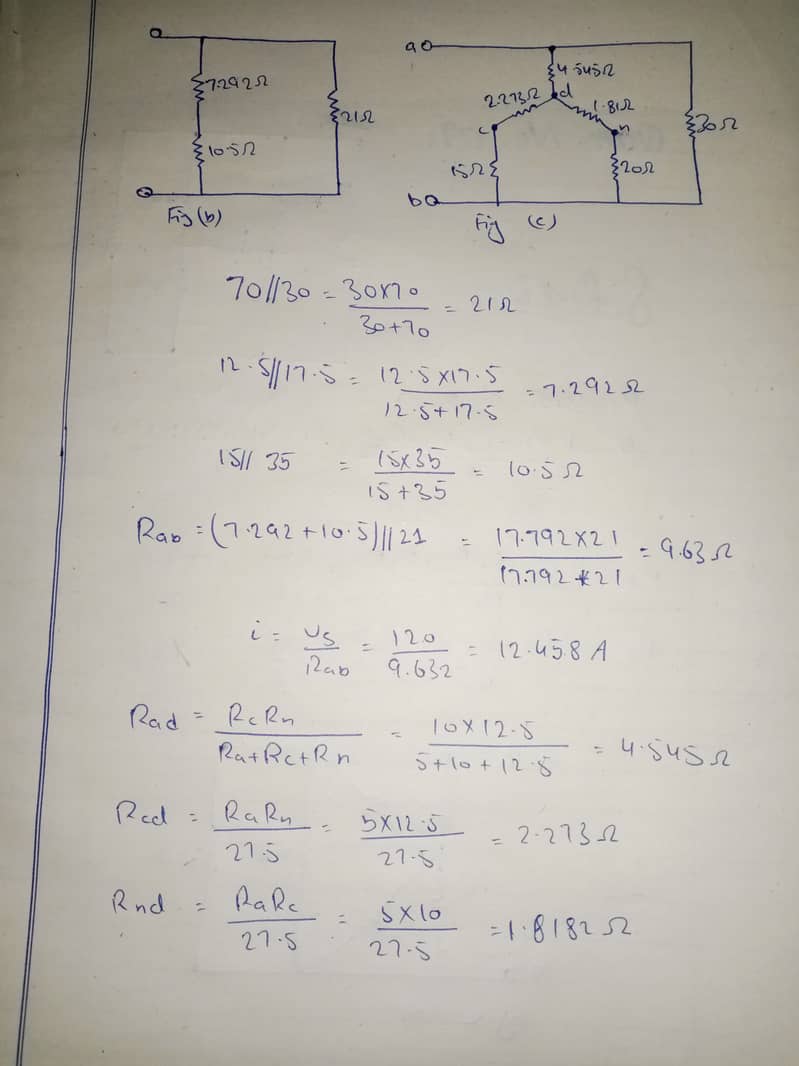 7.292Ω
10.5Ω
21Ω
Fig (b)
a
4.545Ω
2.273Ω
d
1.81Ω
c
n
30Ω
15Ω
20Ω
b
Fig (c)
70//30 = 30×70 / 30+70 = 21Ω
12.5//17.5 = 12.5×17.5 / 12.5+17.5 = 7.292Ω
15//35 = 15×35 / 15+35 = 10.5Ω
Rab = (7.292+10.5)//21 = 17.792×21 / 17.792+21 = 9.63Ω
i = vs / Rab = 120 / 9.632 = 12.458 A
Rad = RcRn / Ra+Rc+Rn = 10×12.5 / 5+10+12.5 = 4.545Ω
Rcd = RaRn / 27.5 = 5×12.5 / 27.5 = 2.273Ω
Rnd = RaRc / 27.5 = 5×10 / 27.5 = 1.8182Ω